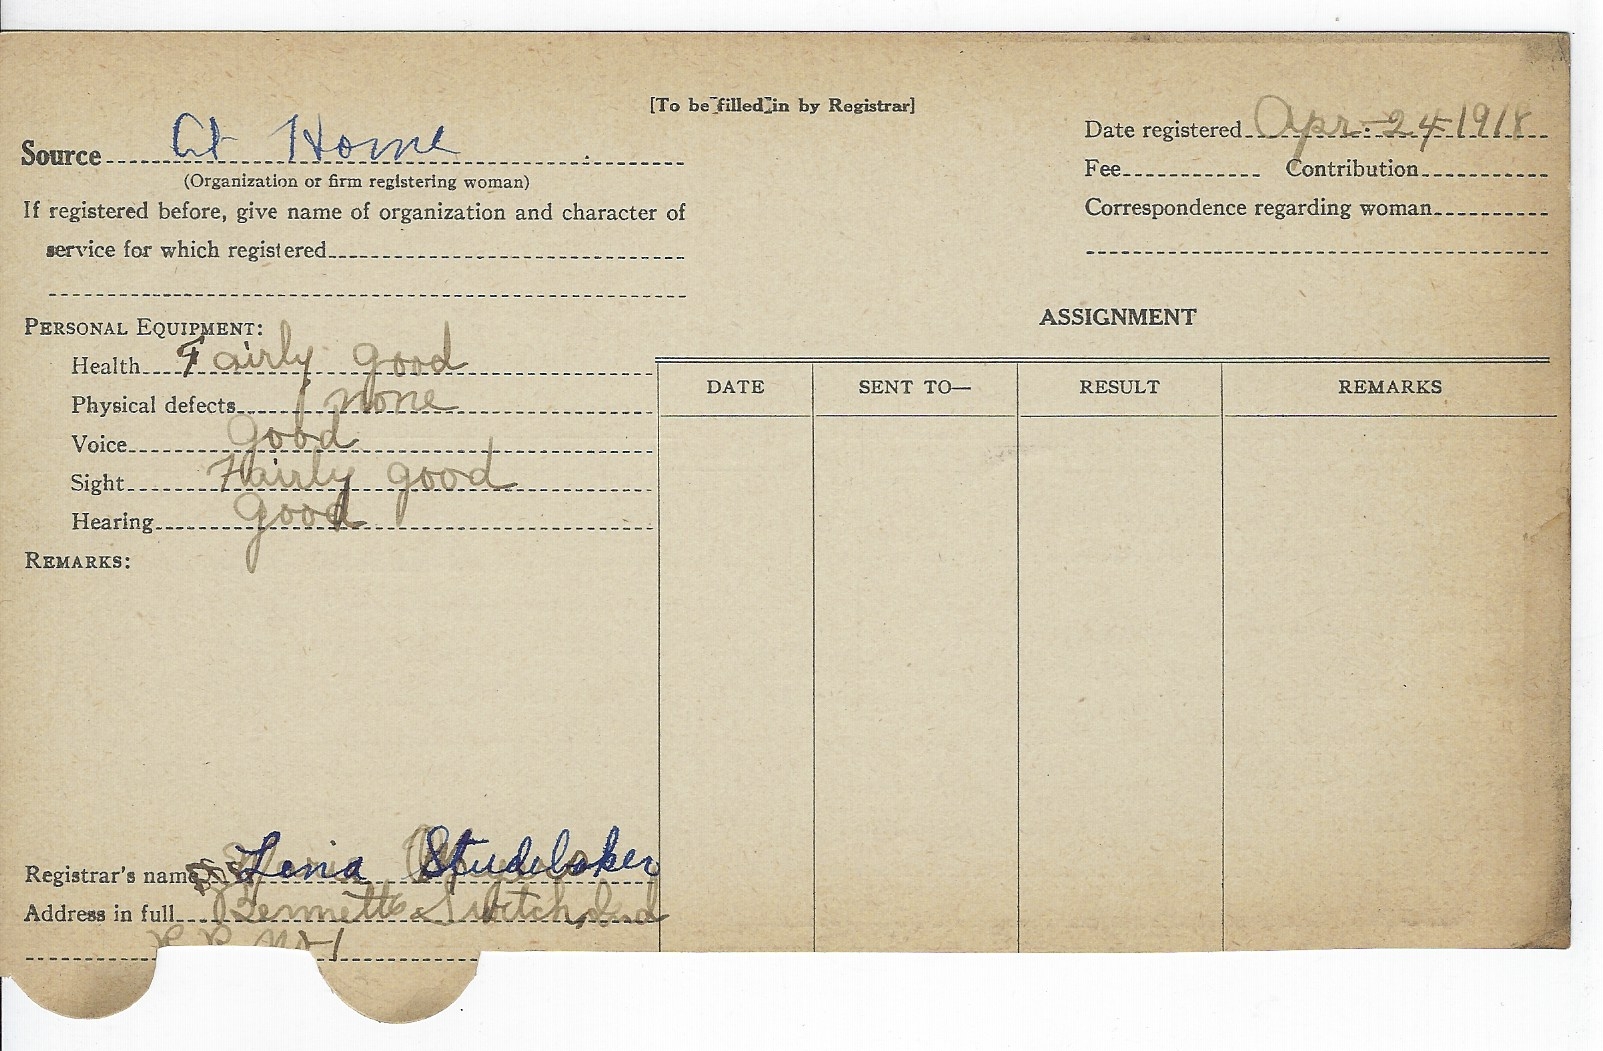 [To be filled in by Registrar]
Source At Home
(Organization or firm registering woman)
If registered before, give name of organization and character of
service for which registered
Date registered Apr. 24 1918
Fee Contribution
Correspondence regarding woman
PERSONAL EQUIPMENT:
Health Fairly good
Physical defects none
Voice Good
Sight Fairly good
Hearing Good
REMARKS:
ASSIGNMENT
DATE SENT TO— RESULT REMARKS
Registrar's name Lena Studebaker
Address in full Bennetts Switch, Ind
R.R. No 1